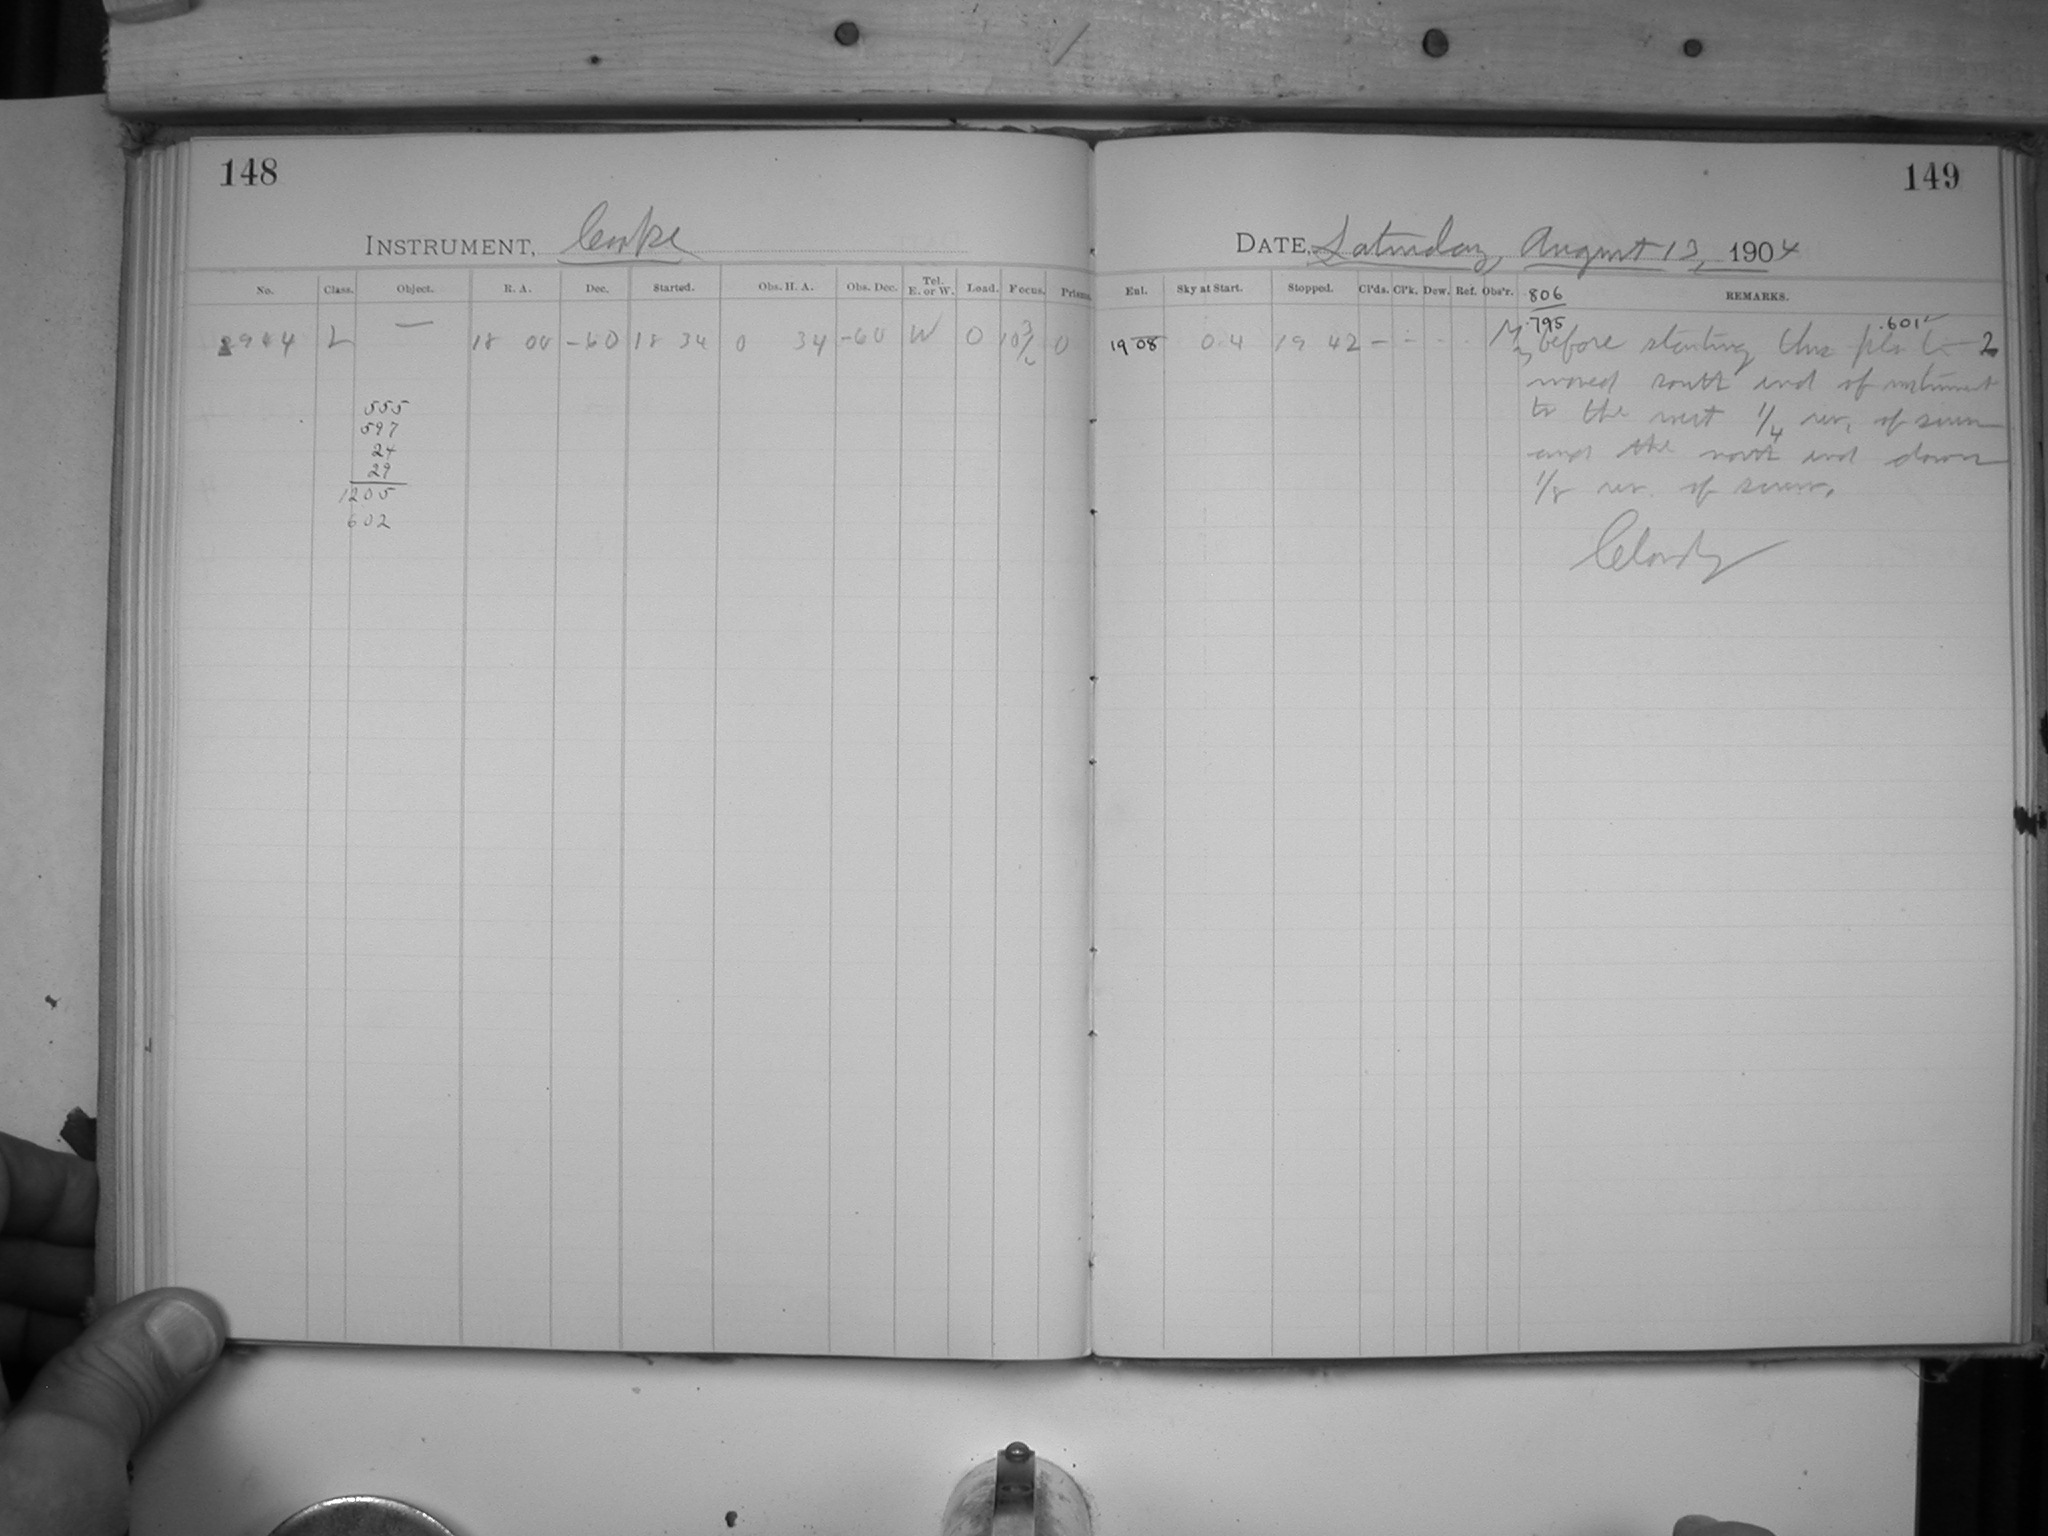 148
149
INSTRUMENT, Cooke
DATE, Saturday, August 13, 1904
No. Class. Object. R. A. Dec. Started. Obs. H. A. Obs. Dec. Tel. E. or W. Load. Focus. Prisms.
Enl. Sky at Start. Stopped. Cl'ds. Cl'k. Dew. Ref. Obs'r. REMARKS.
806
.795 .601
L — 18 00 -60 18 34 0 34 -60 W 0 0
19 08 0 4 19 42 - - . . before starting this plate 2
moved south end of instrument
to the west 1/4 rev. of screw
and the north end down
1/8 rev. of screw.
Cloudy
555
597
24
29
1205
602